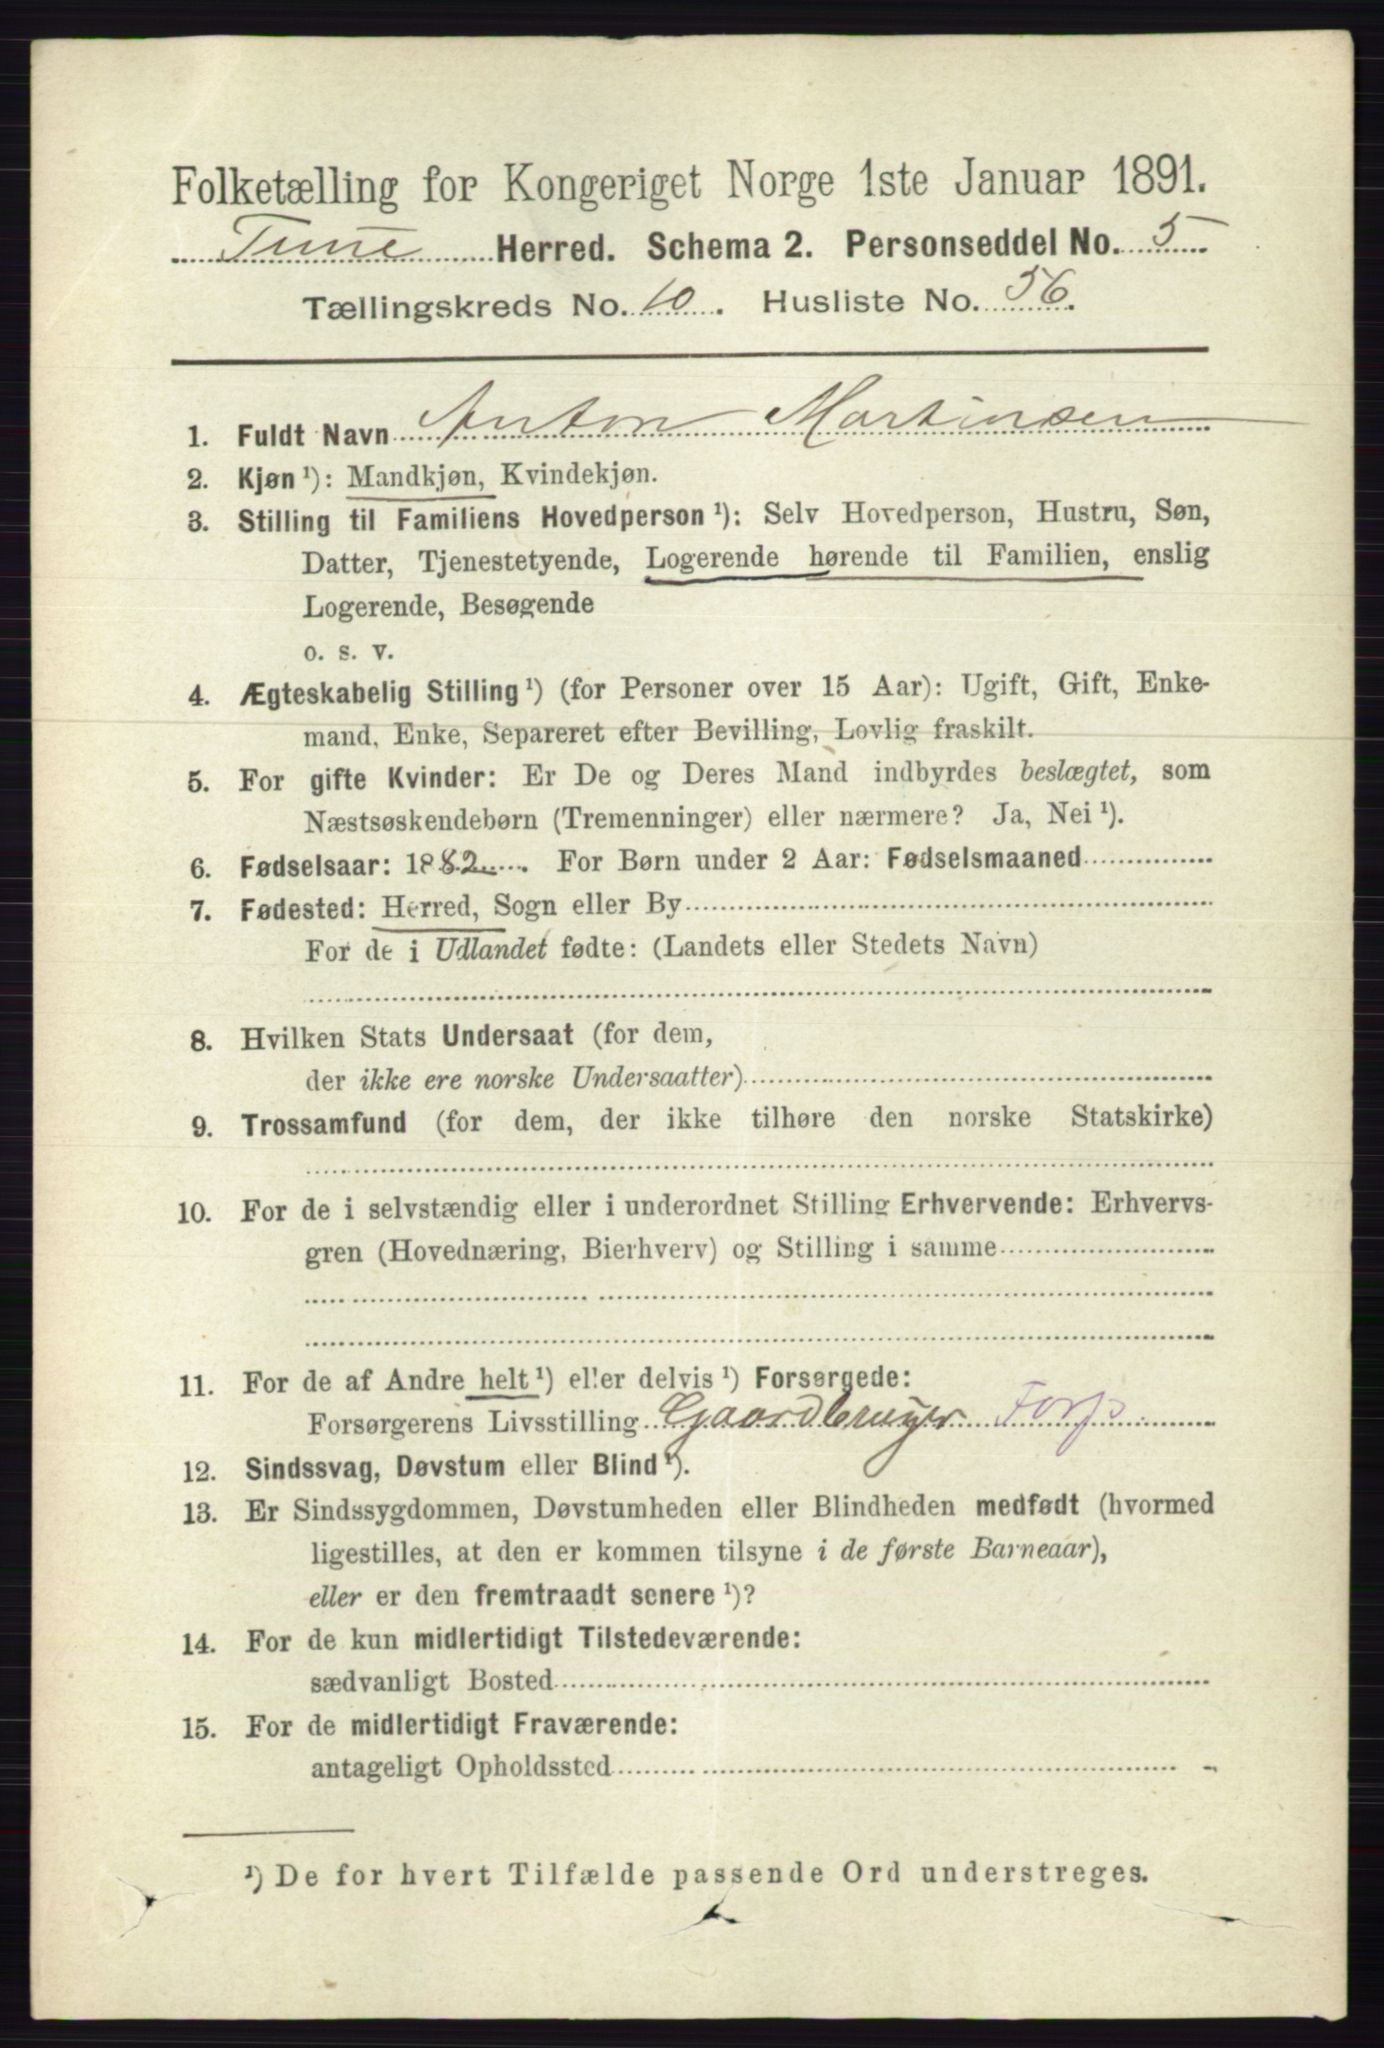 Folketælling for Kongeriget Norge 1ste Januar 1891.
Tune Herred. Schema 2. Personseddel No. 5
Tællingskreds No. 10. Husliste No. 56.
1. Fuldt Navn Anton Martinsen
2. Kjøn ¹): Mandkjøn, Kvindekjøn.
3. Stilling til Familiens Hovedperson ¹): Selv Hovedperson, Hustru, Søn,
Datter, Tjenestetyende, Logerende hørende til Familien, enslig
Logerende, Besøgende
o. s. v.
4. Ægteskabelig Stilling ¹) (for Personer over 15 Aar): Ugift, Gift, Enke-
mand, Enke, Separeret efter Bevilling, Lovlig fraskilt.
5. For gifte Kvinder: Er De og Deres Mand indbyrdes beslægtet, som
Næstsøskendebørn (Tremenninger) eller nærmere? Ja, Nei ¹).
6. Fødselsaar: 1882. For Børn under 2 Aar: Fødselsmaaned
7. Fødested: Herred, Sogn eller By
For de i Udlandet fødte: (Landets eller Stedets Navn)
8. Hvilken Stats Undersaat (for dem,
der ikke ere norske Undersaatter)
9. Trossamfund (for dem, der ikke tilhøre den norske Statskirke)
10. For de i selvstændig eller i underordnet Stilling Erhvervende: Erhvervs-
gren (Hovednæring, Bierhverv) og Stilling i samme
11. For de af Andre helt ¹) eller delvis ¹) Forsørgede:
Forsørgerens Livsstilling Gaardbruger Fors.
12. Sindssvag, Døvstum eller Blind ¹).
13. Er Sindssygdommen, Døvstumheden eller Blindheden medfødt (hvormed
ligestilles, at den er kommen tilsyne i de første Barneaar),
eller er den fremtraadt senere ¹)?
14. For de kun midlertidigt Tilstedeværende:
sædvanligt Bosted
15. For de midlertidigt Fraværende:
antageligt Opholdssted
¹) De for hvert Tilfælde passende Ord understreges.